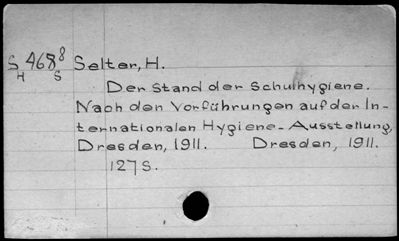 S 4688 Selter, H.
H S
Der Stand der Schulhygiene.
Nach den Vorführungen auf der In-
ternationalen Hygiene-Ausstellung,
Dresden, 1911. Dresden, 1911.
127 S.